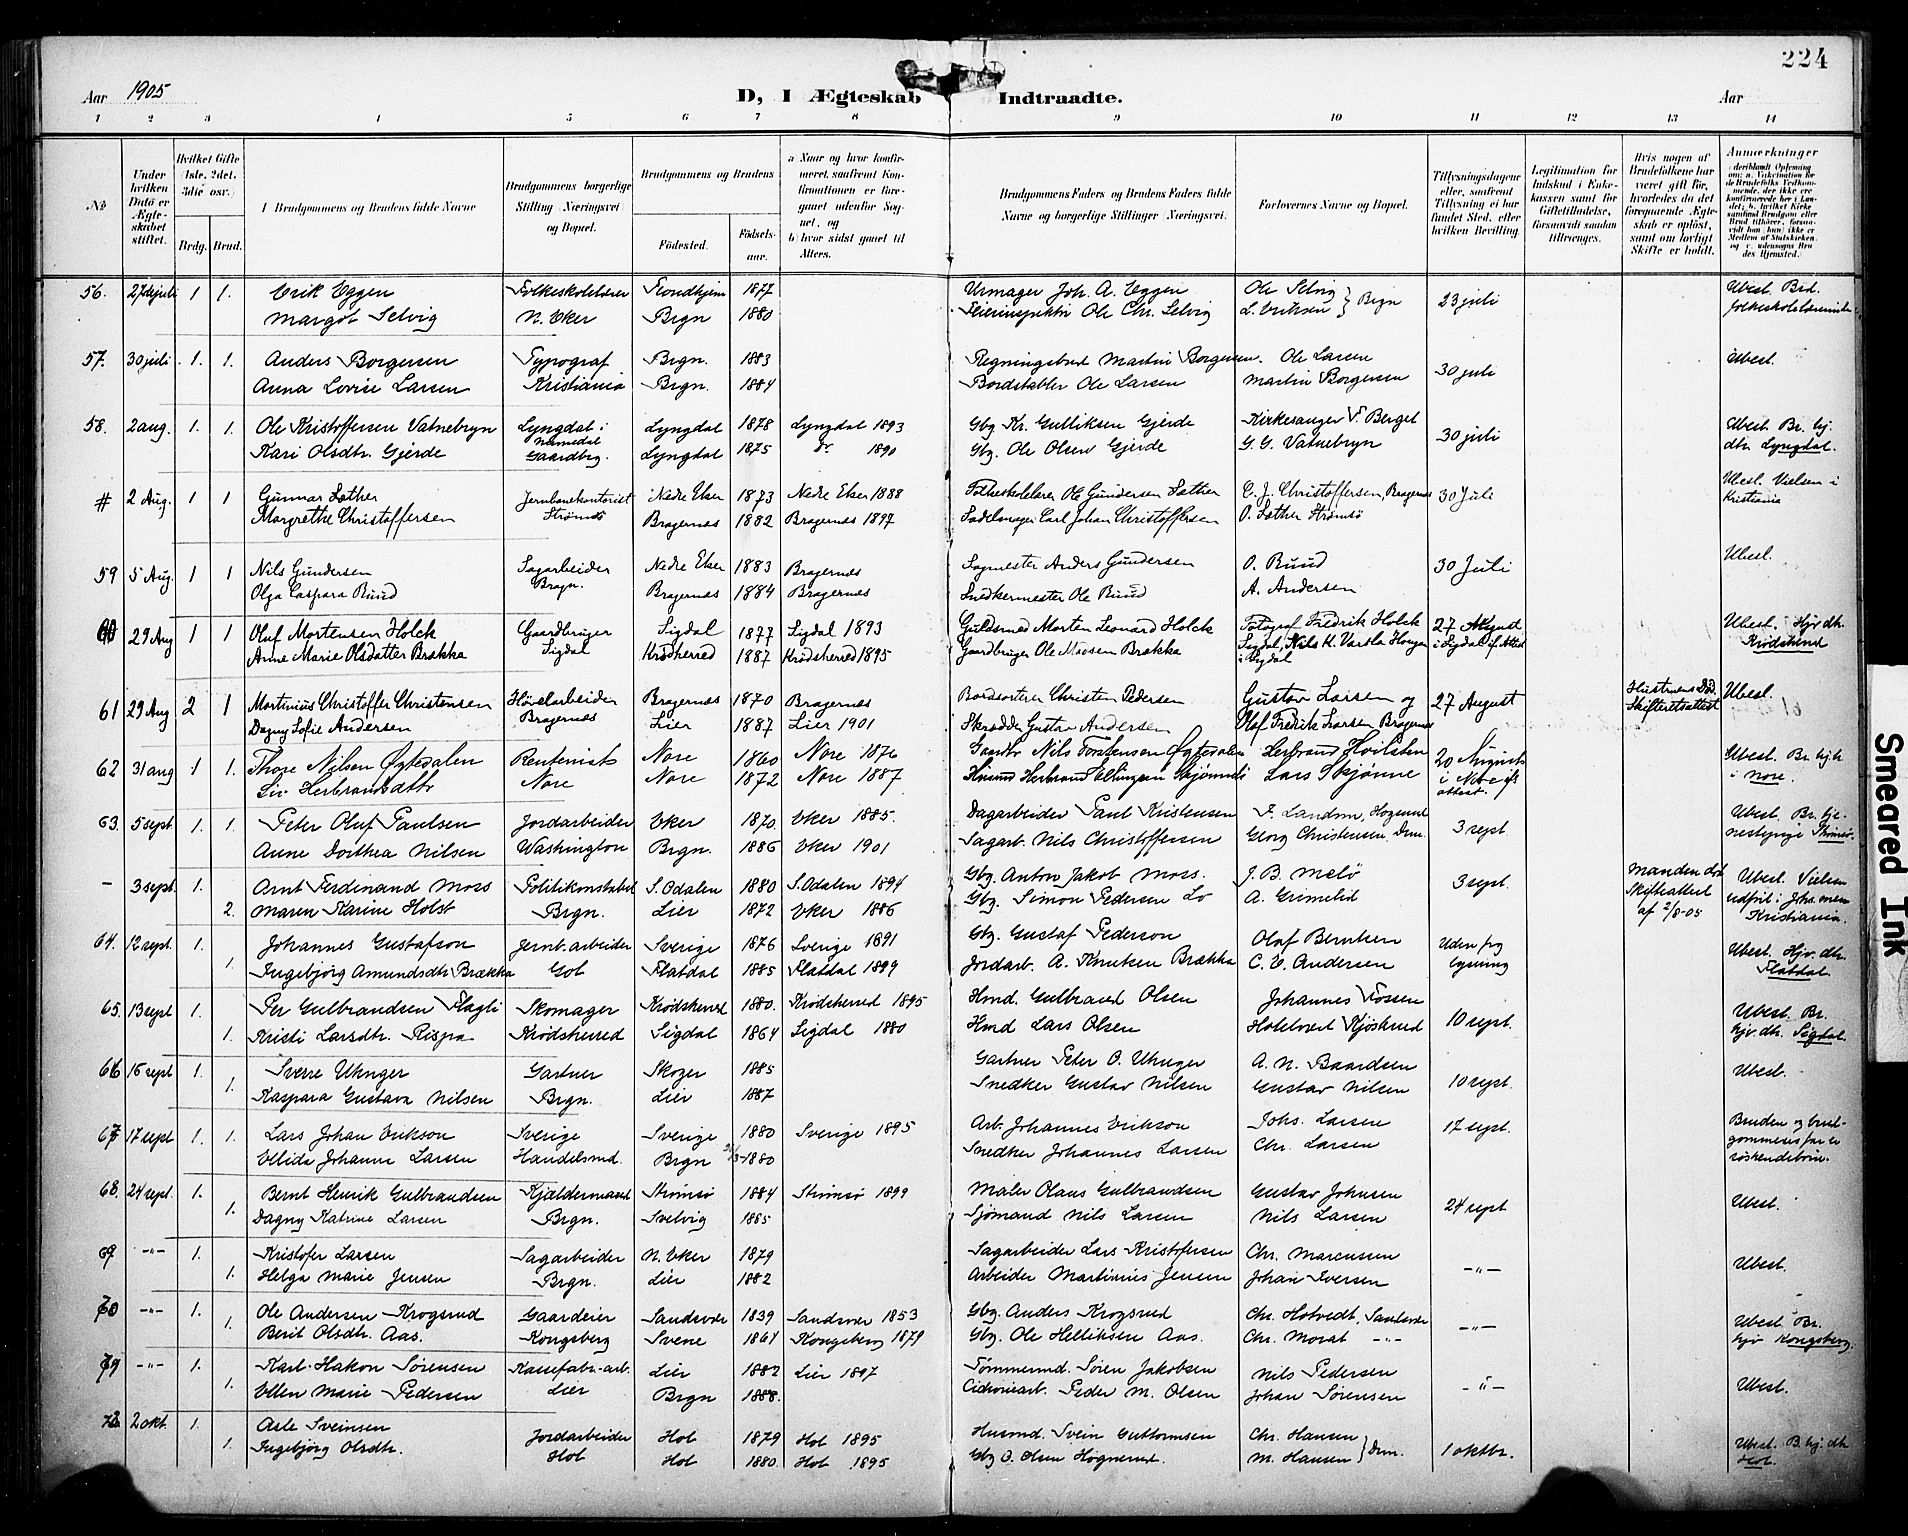 224
Aar 1905
D, I Ægteskab Indtraadte.
Aar
1 2 3 4 5 6 7 8 9 10 11 12 13 14
No
Under hvilken Dato er Ægteskabet stiftet.
Hvilket Gifte (1ste, 2det, 3die osv.)
Brdg. Brud.
I Brudgommens og Brudens fulde Navne
Brudgommens borgerlige Stilling (Næringsvei) og Bopæl.
Brudgommens og Brudens
Fødested.
Fødselsaar.
a Naar og hvor konfirmeret, saafremt Konfirmationen er foregaaet udenfor Sognet, og
b) hvor sidst gaaet til Alters.
Brudgommens Faders og Brudens Faders fulde Navne og borgerlige Stillinger (Næringsvei.
Forlovernes Navne og Bopæl.
Tillysningsdagene eller, saafremt Tillysning ei har fundet Sted, efter hvilken Bevilling.
Legitimation for Indskud i Enkekassen samt for Giftetilladelse, forsaavidt saadan tiltrænges.
Hvis nogen af Brudefolkene har været gift før, hvorledes da det foregaaende Ægteskab er opløst, samt om lovligt Skifte er holdt.
Anmærkninger
56. 27de juli 1 1. Erik Eggen Folkeskolelærer Trondhjem 1877 Urmager Joh. A. Eggen Ole Selvig } Brgn 23 juli Ubesl. Brd.
Margot Selvig N. Eker Brgn 1880 Feierinspektør Ole Chr. Selvig L. Eriksen folkeskolelærerinde
57. 30 juli 1. 1. Anders Borgersen Typograf Brgn. 1883 Regningsbud Martin Borgersen. Ole Larsen 30 juli Ubesl.
Anna Lovise Larsen Kristiania Brgn. 1884 Bordstabler Ole Larsen Martin Borgersen
58. 2 aug. 1. 1. Ole Kristoffersen Vatnebryn Lyngdal i Numedal Lyngdal 1878 Lyngdal 1893 Gbg Kr. Gulliksen Gjerde Kirkesanger T. Berget 30 juli Ubesl. Br. hj.
Kari Olsdtr. Gjerde Gaardbrg. Lyngdal 1875 do 1890 Gbg. Ole Olsen Gjerde G. G. Vatnebryn dtr. Lyngdal.
# 2 Aug. 1 1 Gunnar Sæther Jernbanekontorist Nedre Eker 1873 Nedre Eker 1888 Folkeskolelærer Ole Gundersen Sæther C. J. Christoffersen, Bragernes 30 Juli Ubesl. Vielsen i
Margrethe Christoffersen Strømsø Bragernes 1882 Bragernes 1897 Sadelmager Carl Johan Christoffersen O. Sæther Strømsø Kristiania
59 5 Aug. 1 1 Nils Gundersen Sagarbeider Nedre Eker 1883 Bragernes Sagmester Anders Gundersen O. Ruud 30 Juli Ubesl.
Olga Caspara Ruud Bragn. Bragernes 1884 Bragernes Snedkermester Ole Ruud A. Andersen
60 29 Aug 1 1 Oluf Mortensen Holck Gaardbruger Sigdal 1877 Sigdal 1893 Guldsmed Morten Leonard Holck Fotograf Fredrik Holck 27 August Ubesl. Hjv. dtr.
Anne Marie Olsdatter Brækka Sigdal Krødsherred 1887 Krødsherred 1895 Gaardbruger Ole Moesen Brækka Sigdal, Nils K. Haugen i Sigdal i Sigdal if. Attest
61 29 Aug 2 1 Martinius Christoffer Christensen Høvelarbeider Bragernes 1870 Bragernes Bordsorterer Christen Pedersen Gustav Larsen og 27 August Hustruens Død. Ubesl.
Dagny Sofie Andersen Bragernes Lier 1887 Lier 1901 Skrædder Gustav Andersen Olaf Fredrik Larsen Bragernes Skifteretsattest
62 31 aug 1 1. Thore Nilsen Øgtedalen Rentenist Nore 1860 Nore 1876 Gaardbr Nils Torstensen Øgtedalen Herbrand 20 August Ubesl. Br. hj.h.
Liv Herbrandsdtr Nore Nore 1872 Nore 1887 Husmd Herbrand Skjønne Lars Skjønne i Nore ifl attest. i Nore.
63. 5 sept 1. 1. Peter Oluf Paulsen Jordarbeider Eker 1870 Eker 1885. Dagarbeider Paul Kristensen F. Landsm, Hogsund 3 sept. Ubesl. Br. tje-
Anne Dorthea Nilsen Washington Brgn. 1886 Eker 1901 Sagarb. Nils Christoffersen Georg Christensen Drm. nestepige Strømsø.
- 3 sept. 1. Arnt Ferdinand Moss Politikonstabel S. Odalen 1880 S. Odalen 1894 Gbg. Anton Jakob Moss. J. B. Melø 3 sept. Manden død Ubesl. Vielsen
2. Maren Karine Holst Brgn. Lier 1872 Eker 1886 Gbg. Simon Pedersen Lo A. Grimelid Skifteattest af 2/8-05 udført i Johs. men. Kristiania.
64. 12 sept. 1. Johannes Gustafson Jernb.arbeider Sverige 1876 Sverige 1891 Gbg. Gustaf Pederson Olaf Berntsen Uden for Ubesl. Hjv. dtr.
1. Ingebjørg Amundsdtr. Brækka Gol Flatdal 1885 Flatdal 1899 Jordarb. A. Knutsen Brækka C. E. Andersen lysning Flatdal.
65. 13 sept 1. Per Gulbrandsen Slagli Skomager Krødsherred 1880. Krødsherred 1895 Hmd. Gulbrand Olsen Johannes Fossen 10 sept. Ubesl. Br.
1. Kristi Larsdtr. Rispa Krødsherred Sigdal 1864 Sigdal 1880 Hmd Lars Olsen Hotelvert Kjøsterud hjv dtr. Sigdal.
66 16 sept 1. Sverre Uhnger Gartner Skoger 1885 Gartner Peter O. Uhnger A. N. Baardsen 10 sept. Ubesl.
1. Kaspara Gustava Nilsen Brgn. Lier 1887 Snedker Gustav Nilsen Gustav Nilsen
67 17 sept 1. 1. Lars Johan Erikson Sverige Sverige 1880 Sverige 1895 Arb. Johannes Erikson Johs. Larsen 17 sept. Bruden og brud-
Ellida Johanne Larsen Handelsmd. Brgn 1880 Snedker Johannes Larsen Chr. Larsen gommens far er søskendebørn.
68. 24 sept. 1. Bernt Henrik Gulbrandsen Kjældermand Strømsø 1884 Strømsø 1899 Maler Olaus Gulbrandsen Gustav Johnsen 24 sept Ubesl.
1. Dagny Katrine Larsen Brgn. Svelvig 1885 Sjømand Nils Larsen Nils Larsen
69 -"- 1. Kristofer Larsen Sagarbeider N. Eker 1879 Sagarbeider Lars Kristofersen Chr. Marcussen -"- Ubesl.
1. Helga Marie Jensen Brgn. Lier 1882 Arbeider Martinius Jensen Johan Iversen
70 -"- 1. Ole Andersen Krogsrud Gaardeier Sandsvær 1839 Sandsvær 1853 Gbg. Anders Krogsrud Chr. Hotvedt, Sandsvær -"- Ubesl. Br.
1. Berit Olsdtr. Aas. Kongsberg Svene 1864 Kongsberg 1879 Gbg. Ole Helliksen Aas. Chr. Morat -"- hjv Kongsberg.
71 -"- 1. Karl Hakon Sørensen Kassefabr.-arb. Lier 1882 Lier 1897 Tømmermd. Søren Jakobsen Nils Pedersen -"- Ubesl.
1. Ellen Marie Pedersen Lier Brgn 1888. Cichoriarb. Peder M. Olsen Johan Sørensen
72 2 okt. 1. Asle Sveinsen Jordarbeider Hol 1879 Hol 1895 Husmd. Svein Guttormsen Chr. Hansen } Drm. 1 oktbr. Ubesl. B. hj. dtr.
1. Ingebjørg Olsdtr. Hol Hol 1880 Hol 1895 Gbg O. Olsen Høgnerud. M. Hansen Hol.
Smeared Ink